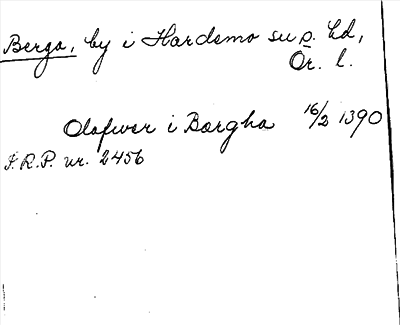 Berga, by i Hardemo su o. hd,
Ör. l.
Olafwer i Bærgha 16/2 1390
S.R.P. nr. 2456